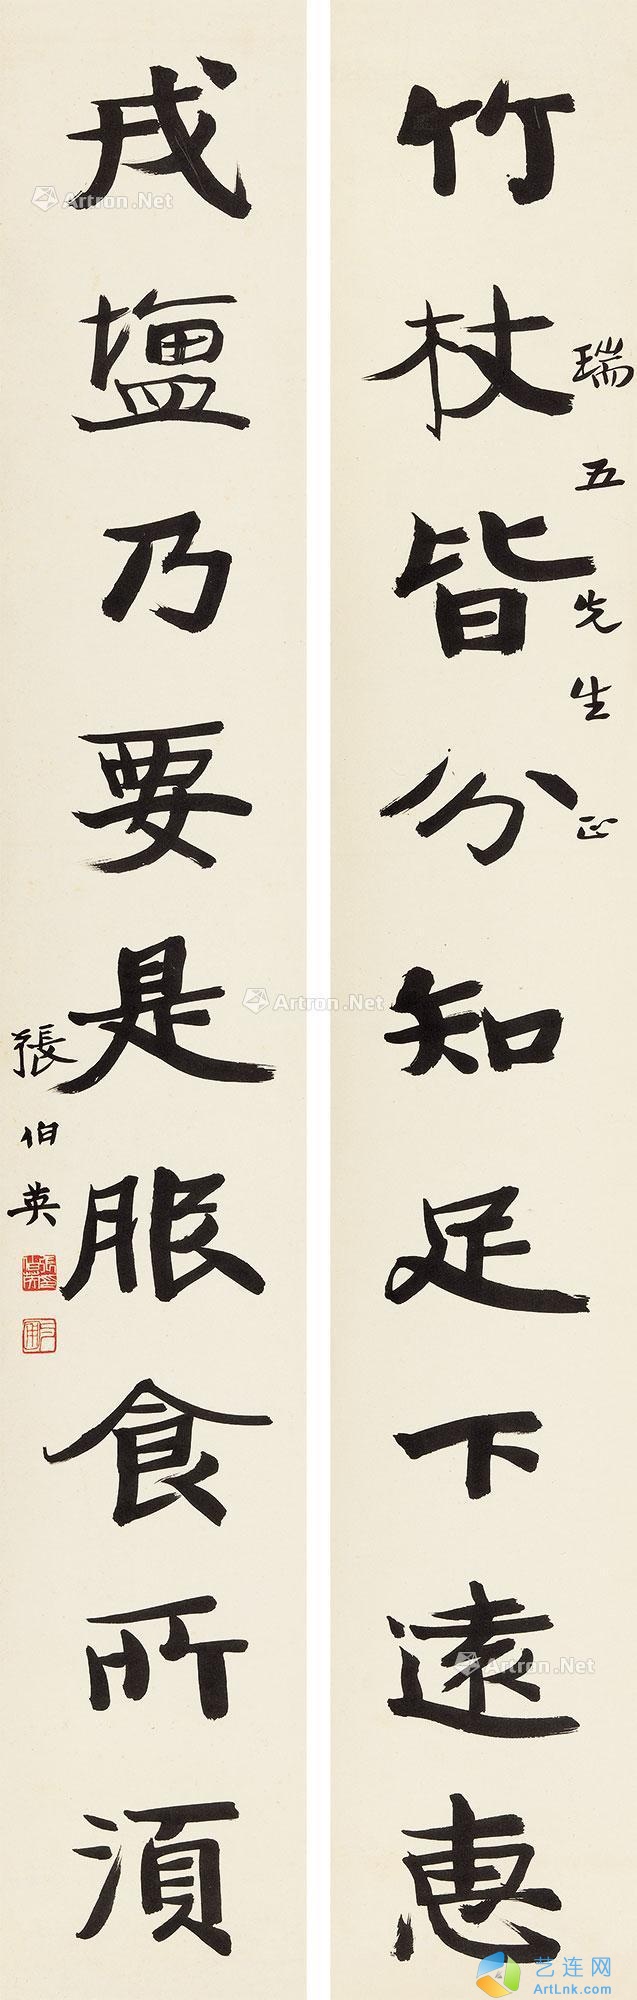 瑞五先生正
竹杖皆分知足下遠惠
戎塩乃要是服食所湏
張伯英
Artron.Net
Artron.Net
Artron.Net
艺连网
ArtLnk.com